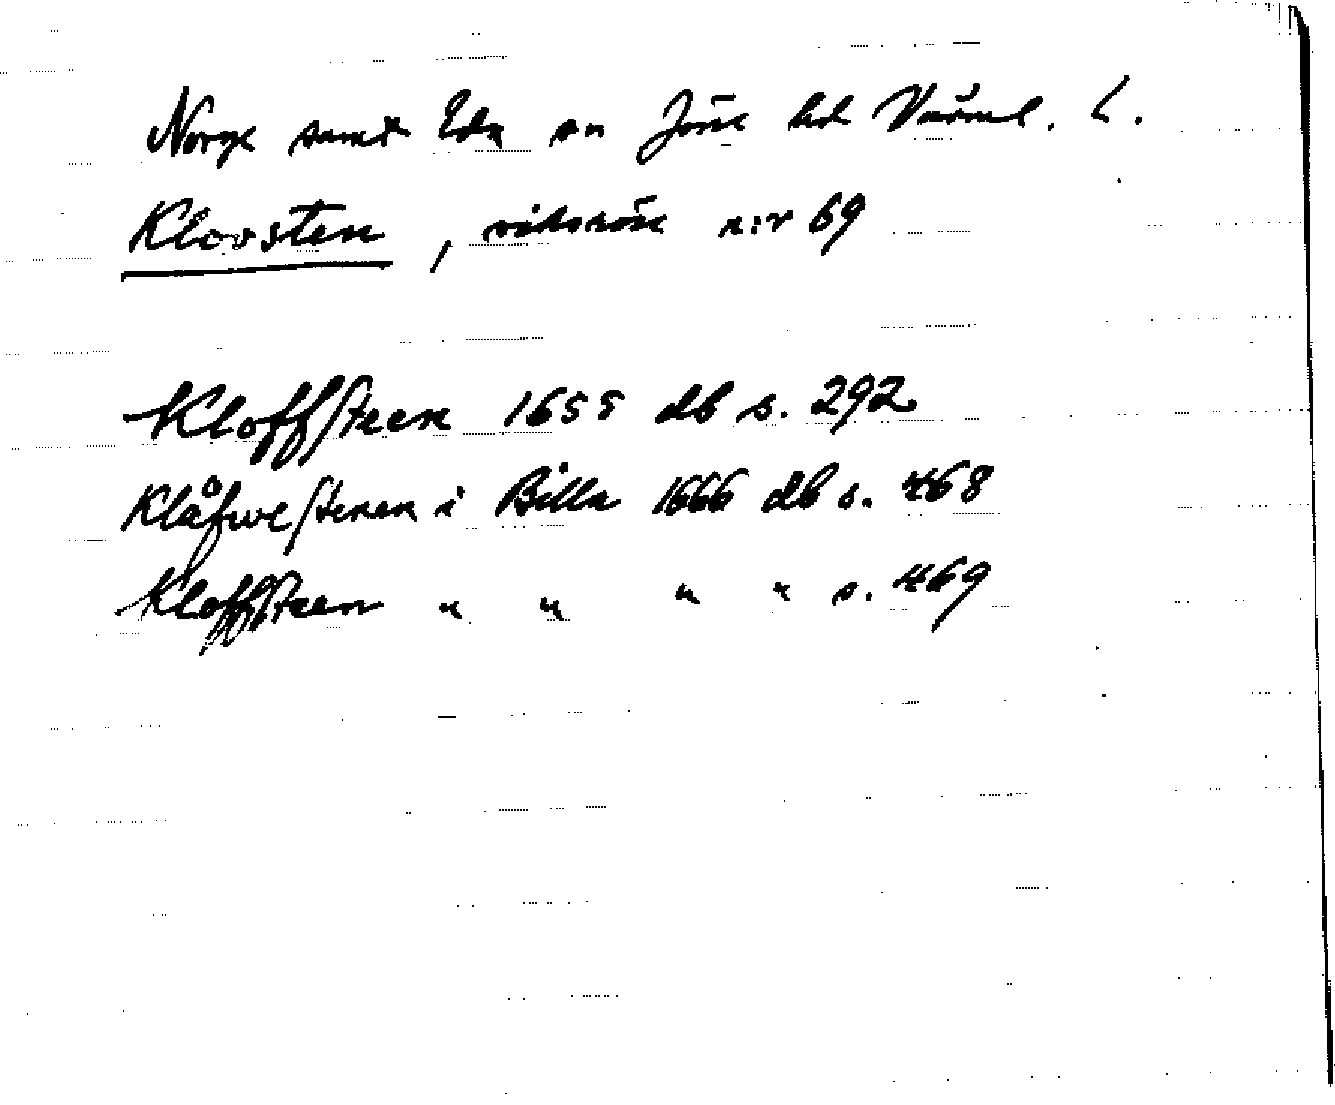 Norge samt Eda sn Jösse hd Värml. L.
Klovsten, riksröse n:r 69
Kloffsteen 1655 db s. 292
Klåfwestenen i Billa 1666 db s. 468
Kloffsteen " " " " s. 469